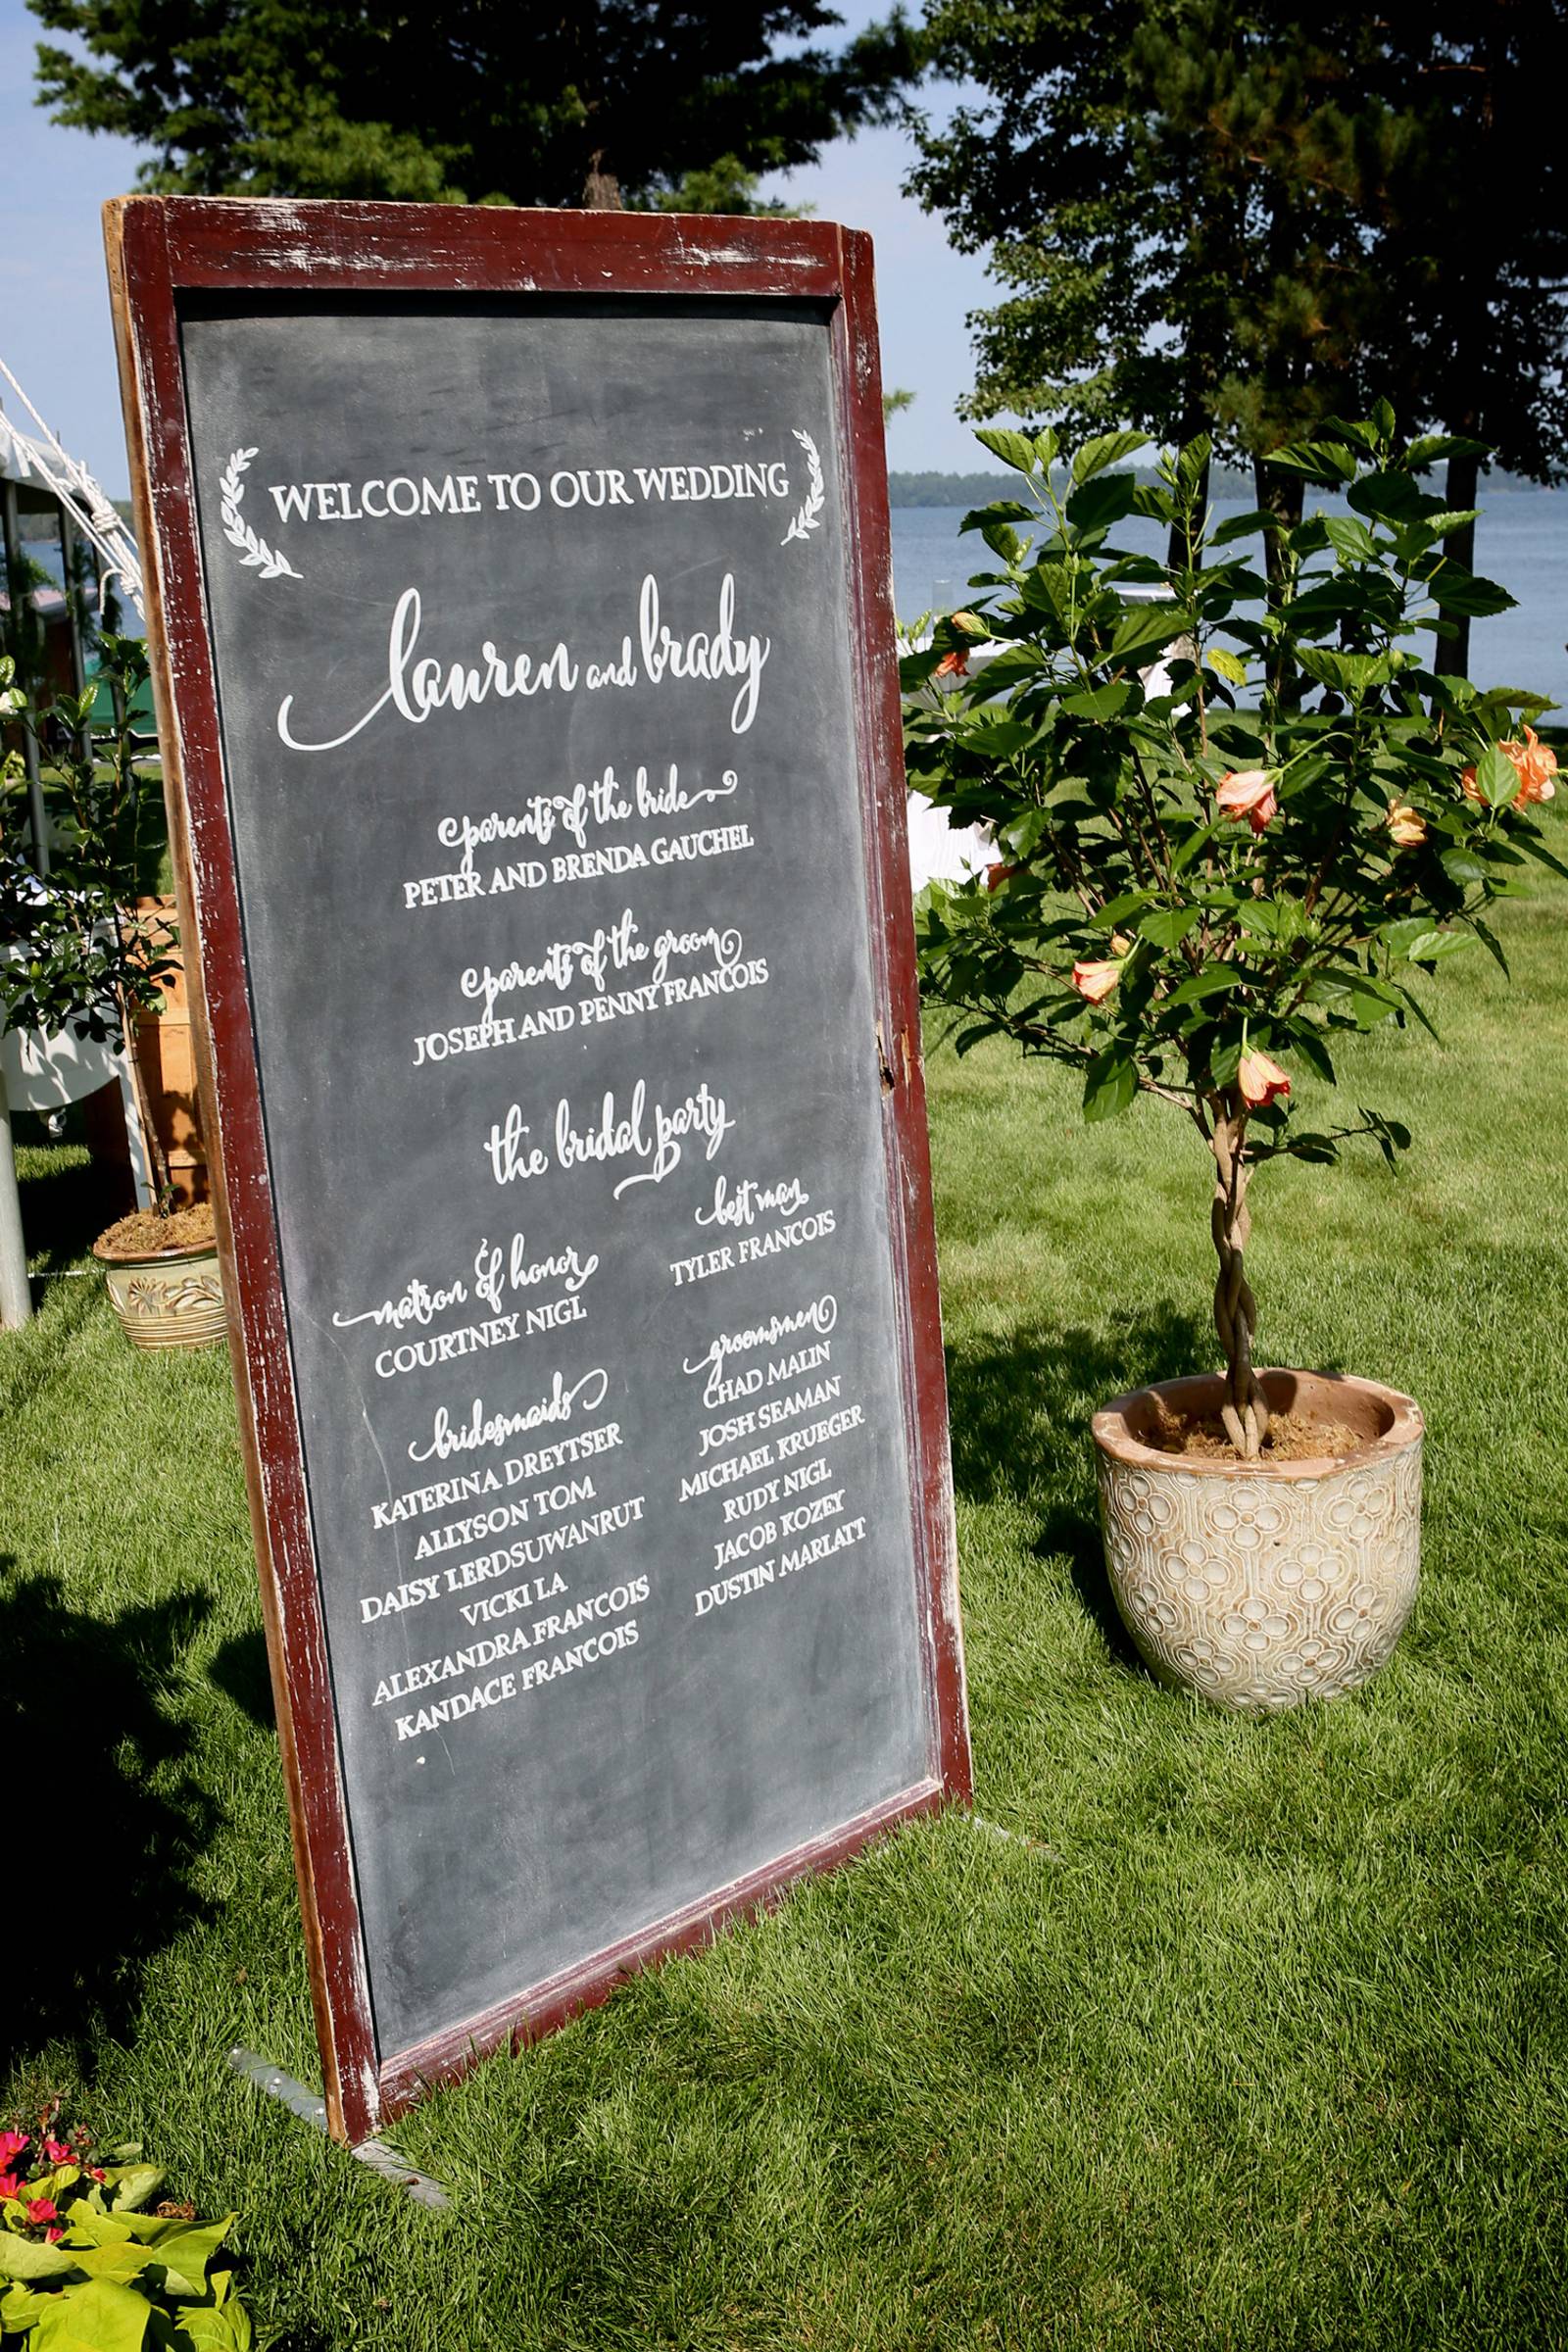 WELCOME TO OUR WEDDING
lauren and brady
parents of the bride
PETER AND BRENDA GAUCHEL
parents of the groom
JOSEPH AND PENNY FRANCOIS
the bridal party
matron of honor
COURTNEY NIGL
bridesmaids
KATERINA DREYTSER
ALLYSON TOM
DAISY LERDSUWANRUT
VICKI LA
ALEXANDRA FRANCOIS
KANDACE FRANCOIS
best man
TYLER FRANCOIS
groomsmen
CHAD MALIN
JOSH SEAMAN
MICHAEL KRUEGER
RUDY NIGL
JACOB KOZEY
DUSTIN MARLATT